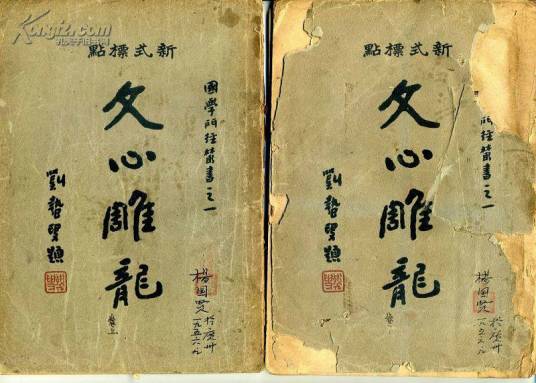 Kongfz.com
孔夫子旧书网
點標式新
國學門徑叢書之一
文心雕龍
卷上
楊國
於廣州
一九五六、九
點標式新
門徑叢書之一
文心雕龍
楊國
於廣州
一九五六、九